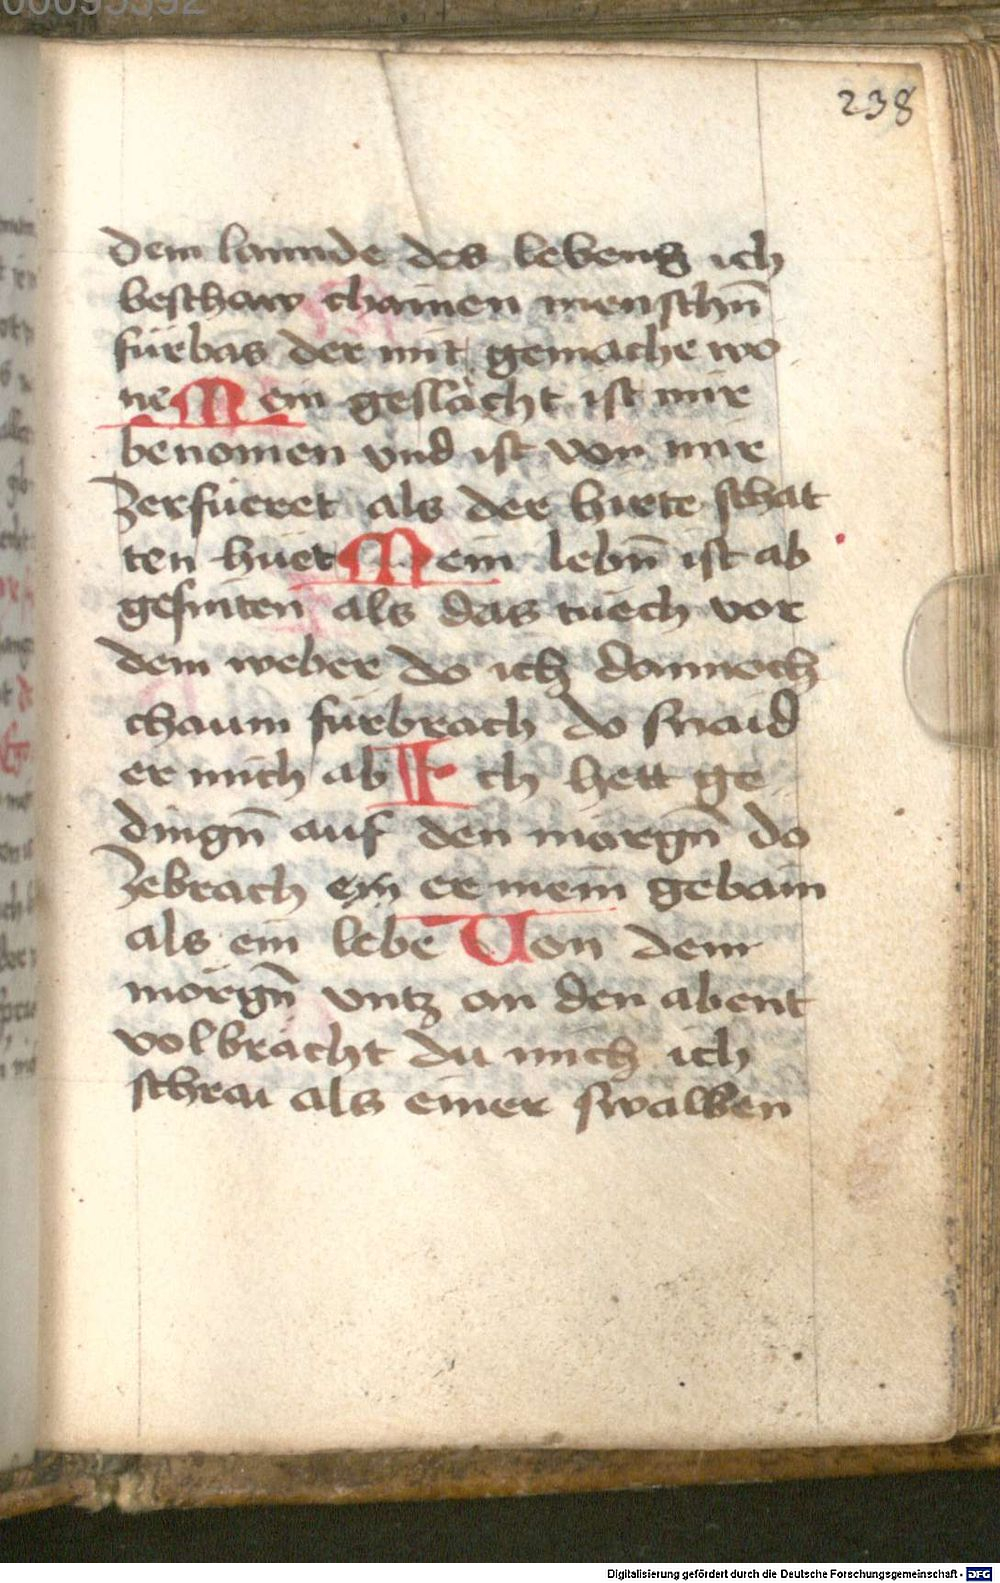 238
dem lannde des lebens ich
beschaw chainen menschn̄
fürbas der mit gemache wo
ne Mein geslächt ist mir
benomen vnd ist von mir
zerfüeret als der hirte schat
ten huet Mein lebn̄ ist ab
gesniten als das tuech vor
dem weber do ich dannoch
chaum fürbrach do snaid
er mich ab Ich hett ge
dingn̄ auf den morgn̄ do
zebrach er mein gebain
als ein lebe Uon dem
morgn̄ vntz an den abent
volbrächt du mich ich
schrai als einer swalben
Digitalisierung gefördert durch die Deutsche Forschungsgemeinschaft - DFG